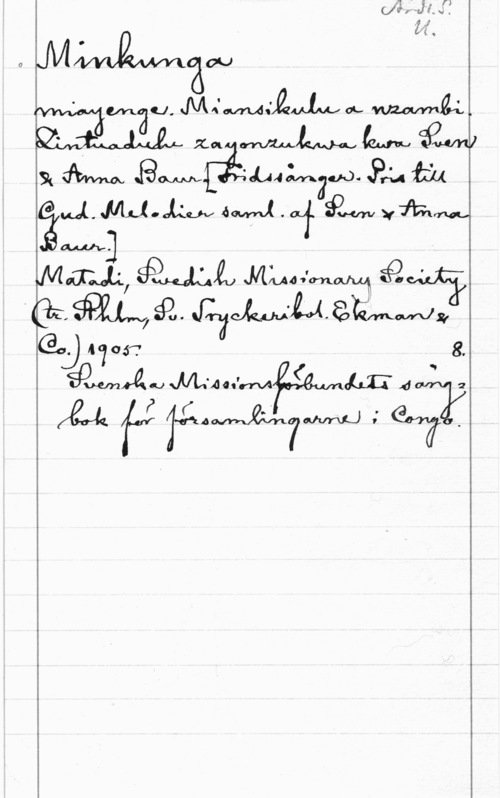 Andl. S.
U.
Minkunga
miayenge. Miansikulu a nzambi.
Zintuadulu zayonzukwa kwa Sven
& Anna Baur. [Fridssånger. Pris till
Gud. Melodier saml. af Sven & Anna
Baur.]
Matadi, Swedish Missionary Society
(tr. Sthlm, Sv. Tryckeribol. Ekman &
Co.) 1905. 8.
Svenska Missionsförbundets sång=
bok för församlingarne i Congo.